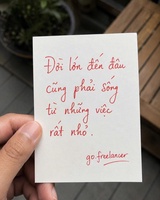 Đời lớn đến đâu
cũng phải sống
từ những việc
rất nhỏ.
go.freelancer